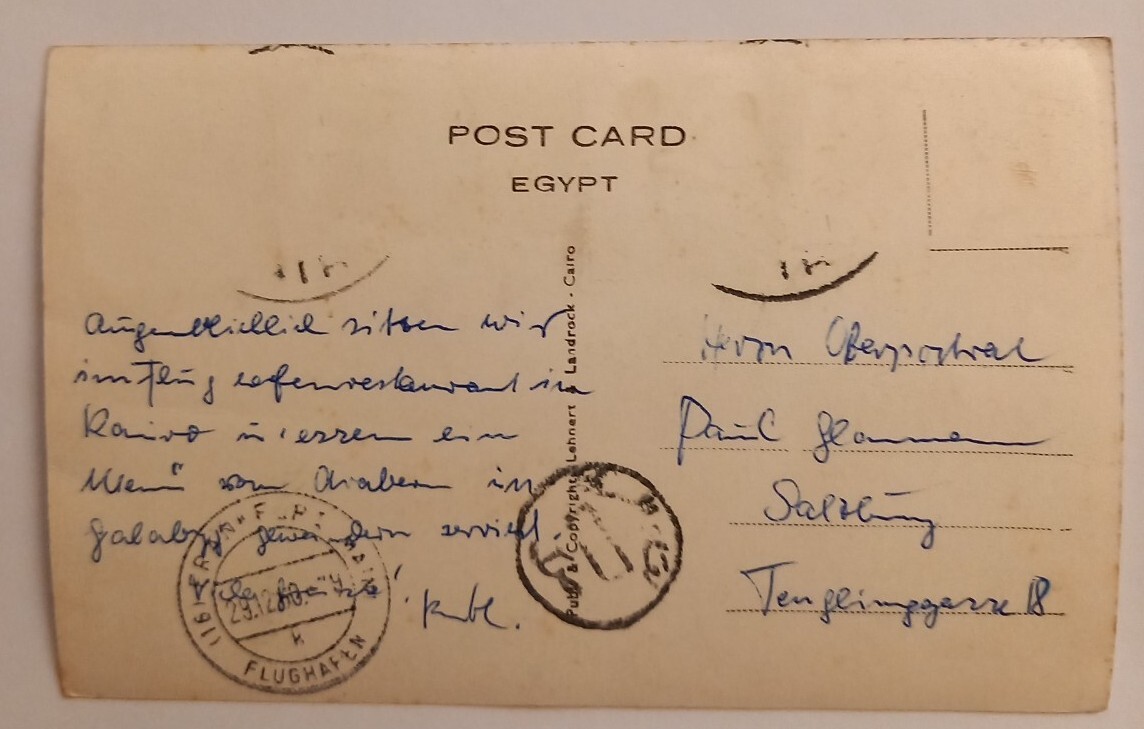 POST CARD
EGYPT
Publ. & Copyright Lehnert & Landrock - Cairo
Augenblicklich sitzen wir
im Flughafenrestaurant in
Kairo u. essen ein
Menü von Arabern in
gewändern serviert.
Viele Grüße!
Herrn Oberpostrat
Paul
Salzburg
18
(16) FRANKFURT MAIN
29.12.
k
FLUGHAFEN